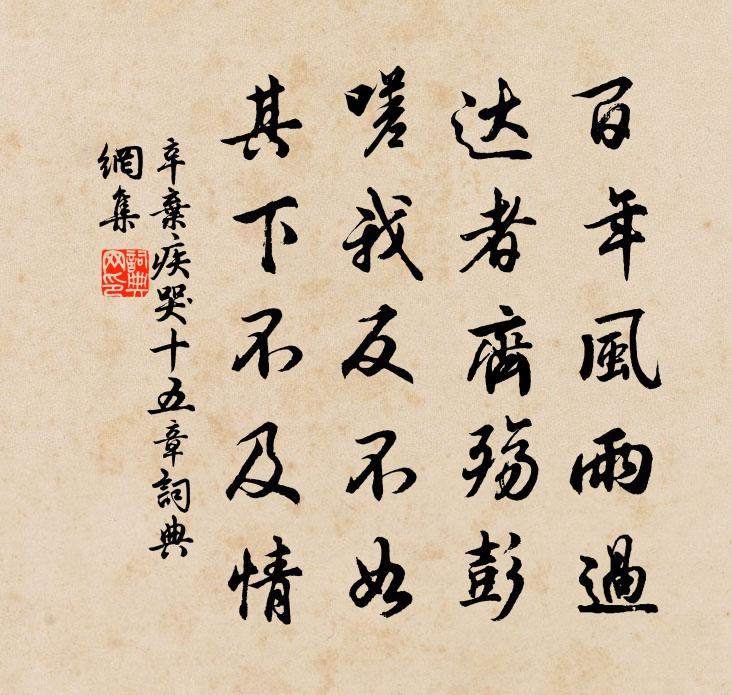 百年風雨過
达者齊殤彭
嗟我反不如
其下不及情
辛棄疾哭十五章詞典
網集
詞典網印